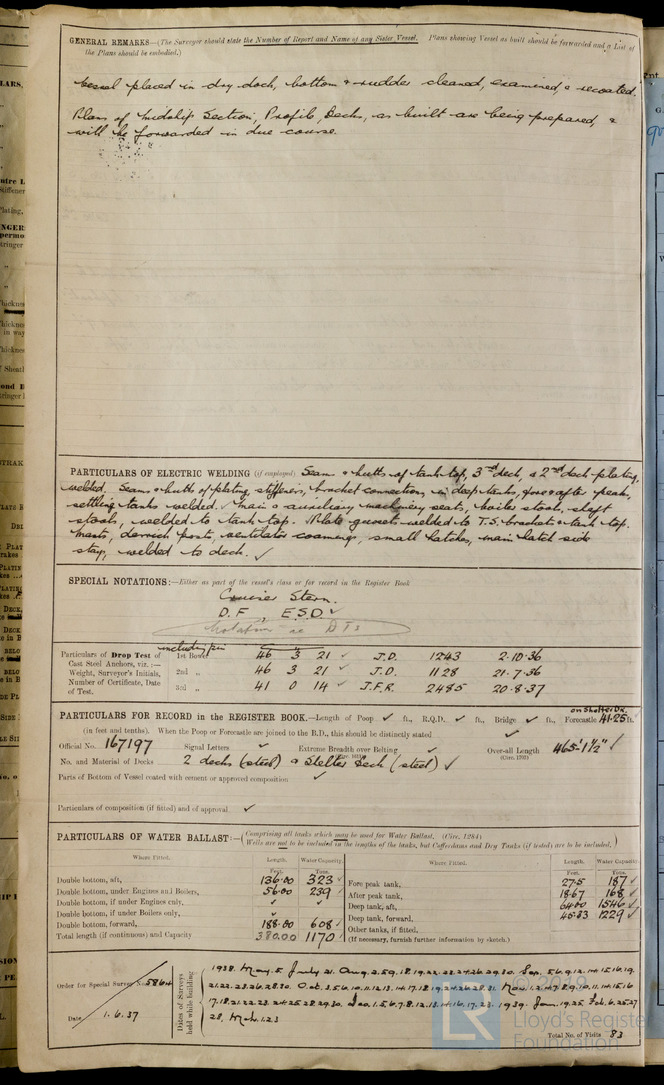 GENERAL REMARKS—(The Surveyor should state the Number of Report and Name of any Sister Vessel. Plans showing Vessel as built should be forwarded and a List of
the Plans should be embodied.)
Vessel placed in dry dock, bottom & rudder cleaned, examined, & recoated.
Plans of Midship Section, Profile, Decks, as built are being prepared, &
will be forwarded in due course.
PARTICULARS OF ELECTRIC WELDING (if employed) Seams & butts of tank top, 3rd deck, & 2nd deck plating,
welded. Seams & butts of plating, stiffeners, bracket connections, in deep tanks, fore & after peaks,
settling tanks welded. Main & auxiliary machinery seats, boiler stools, shaft
stools, welded to tank top. gussets welded to T.S. brackets & tank top.
Masts, derrick posts, ventilator coamings, small hatches, main hatch side
stays, welded to deck. ✓
SPECIAL NOTATIONS:—Either as part of the vessel's class or for record in the Register Book
Cruiser Stern.
D.F, E.S.D. ✓
Notation
including pin
Particulars of Drop Test of 1st Bower 46 3 21 ✓ J.D. 1243 2.10.36
Cast Steel Anchors, viz.:—
Weight, Surveyor's Initials, 2nd „ 46 3 21 ✓ J.D. 1128 21.7.36
Number of Certificate, Date
of Test. 3rd „ 41 0 14 ✓ J.F.R. 2485 20.8.37
on Shelter Dk.
PARTICULARS FOR RECORD in the REGISTER BOOK.—Length of Poop ✓ ft., R.Q.D. ✓ ft., Bridge ✓ ft., Forecastle 41.25 ft.
(in feet and tenths). When the Poop or Forecastle are joined to the B.D., this should be distinctly stated ✓
Official No. 167197 Signal Letters ✓ Extreme Breadth over Belting ✓ Over-all Length 465'-1½" ✓
(Circ. 1703)
No. and Material of Decks 2 decks (steel) & Shelter Deck (steel) ✓
Parts of Bottom of Vessel coated with cement or approved composition ✓
Particulars of composition (if fitted) and of approval ✓
PARTICULARS OF WATER BALLAST:—(Comprising all tanks which may be used for Water Ballast. (Circ. 1284)
Wells are not to be included in the lengths of the tanks, but Cofferdams and Dry Tanks (if tested) are to be included.)
Where Fitted. Length. Water Capacity. Where Fitted. Length. Water Capacity.
Feet. Tons. Feet. Tons.
Double bottom, aft, 136.00 323 ✓ Fore peak tank, 27.5 187 ✓
Double bottom, under Engines and Boilers, 56.00 239 ✓ After peak tank, 18.67 168 ✓
Double bottom, if under Engines only, ✓ ✓ Deep tank, aft, 64.00 1546 ✓
Double bottom, if under Boilers only, ✓ Deep tank, forward, 45.83 1229 ✓
Double bottom, forward, 188.00 608 ✓ Other tanks, if fitted,
Total length (if continuous) and Capacity 380.00 1170 ✓ (If necessary, furnish further information by sketch.)
Order for Special Survey No. 5864
Date 1.6.37
Dates of Surveys held while building
1938. May.5. July 21. Aug. 2.5.9.
21.22.23.26.28.30. Oct. 3.5.6.10.11.12.13.14.17.18.19.24.26.28.31. Nov. 1.2.4.7.8.9.10.11.14.15.16
17.18.21.22.23.24.25.28.29.30. Dec. 1.5.6.7.8.12.13.14.16.17.23. 1939. Jan. 19.25. Feb. 6.25.27
28. Mch. 1.23
Total No. of Visits 83
© 2019
LR
Lloyd's Register
Foundation